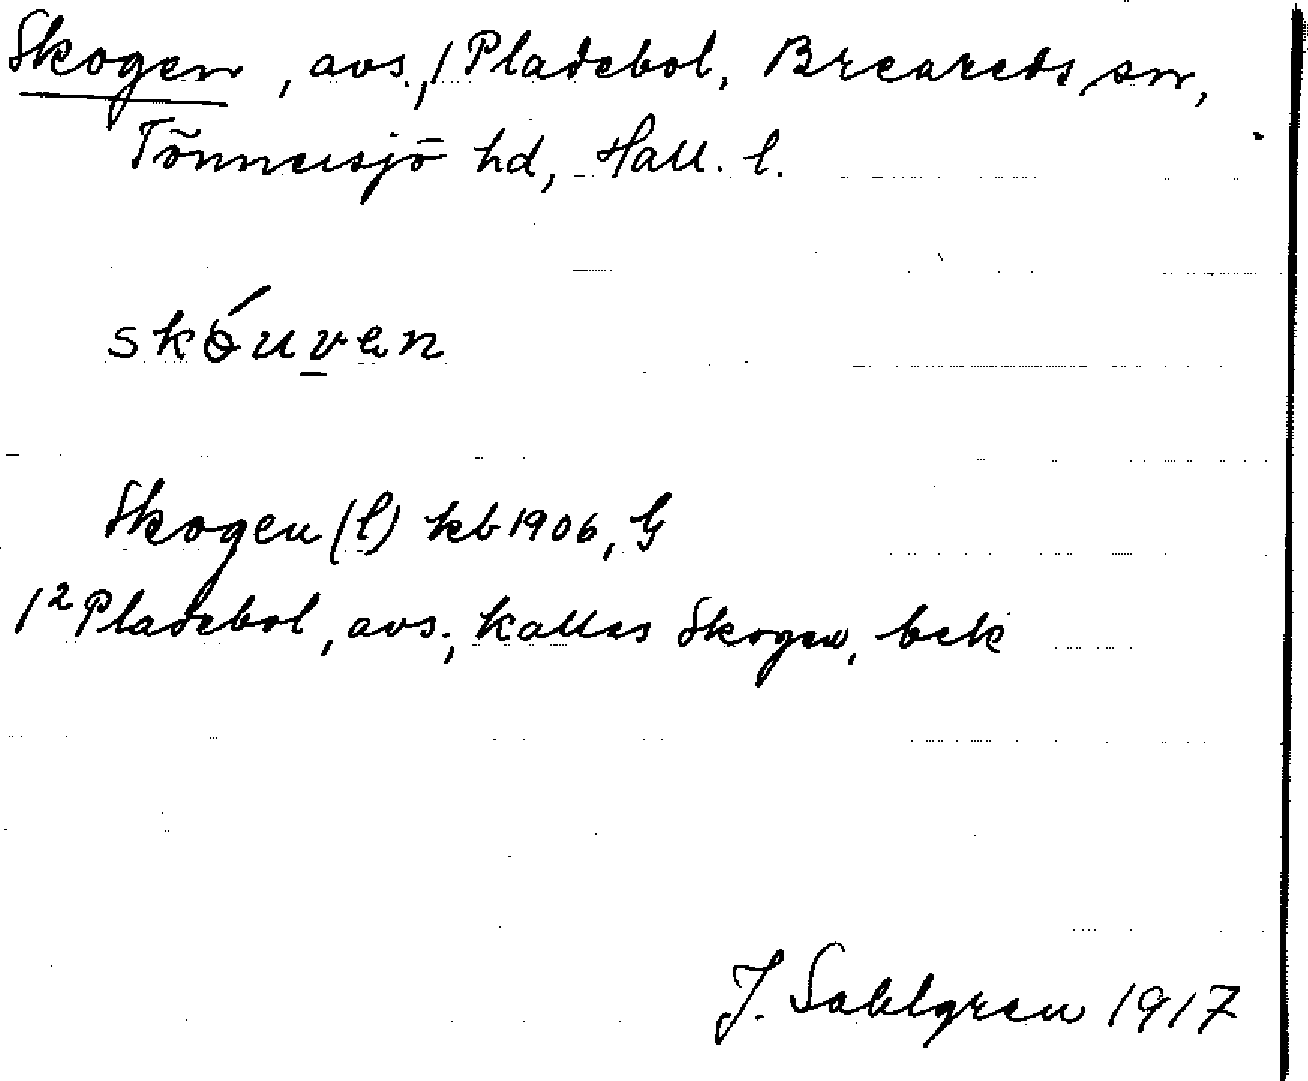 Skogen, avs., / Pladebol, Breareds sn,
Tönnersjö hd, Hall. l.
skóuven
Skogen (l) kb 1906, G
/² Pladebol, avs., kallas Skogen, bek
J. Sahlgren 1917